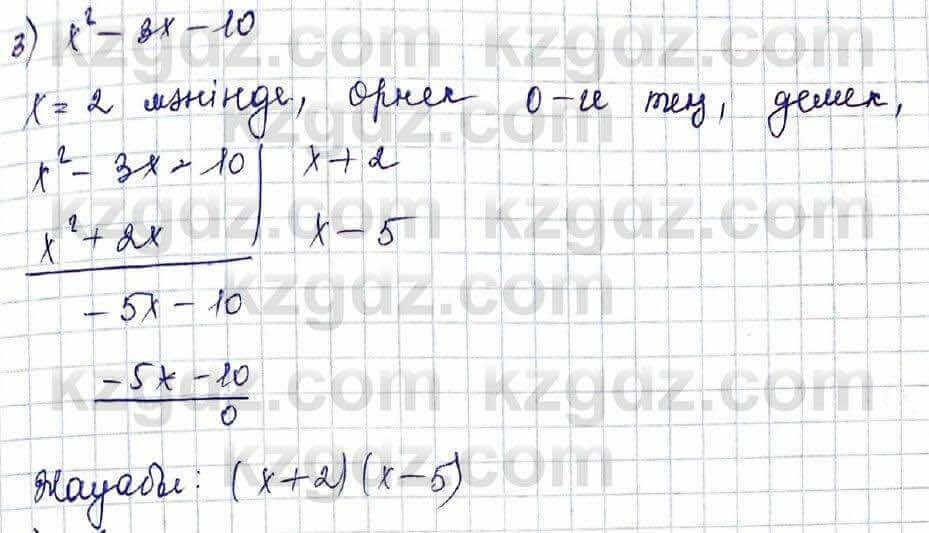 3) x² - 3x - 10
x = 2 мәнінде, өрнек 0-ге тең, демек,
x² - 3x - 10 | x + 2
x² + 2x | x - 5
- 5x - 10
- 5x - 10
0
Жауабы: (x+2)(x-5)
kzgdz.com kzgdz.com
kzgdz.com kzgdz.com
kzgdz.com
kzgdz.com kzgdz.com
kzgdz.com